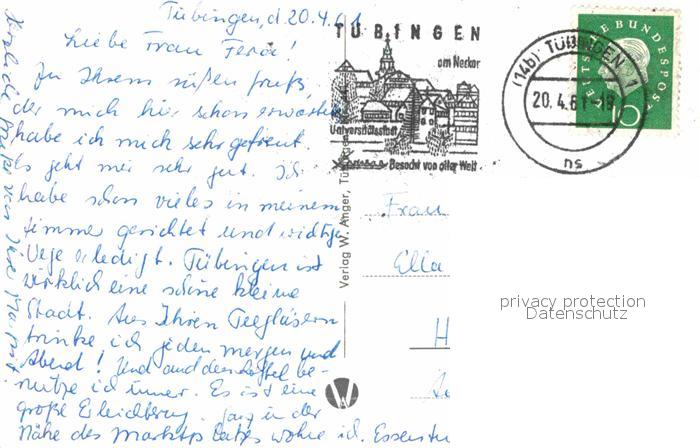 Tübingen, d. 20.4.61
Liebe Frau
Zu Ihrem süßen Gruß,
der mich hier schon erwartete
habe ich mich sehr gefreut.
Es geht mir sehr gut. Ich
habe schon vieles in meinem
Zimmer gerichtet und wichtige
Wege erledigt. Tübingen ist
wirklich eine schöne kleine
Stadt. Aus Ihren Teegläsern
trinke ich jeden morgen und
Abend! Und auch den Löffel be-
nutze ich immer. Es ist eine
große Erleichterung. Ganz in der
Nähe des Marktplatzes wohne ich.
Herzliche Grüße von Ihrer
TÜBINGEN
am Neckar
Universitätsstadt
Besucht von aller Welt
(14b) TÜBINGEN 1
20.4.61-19
ns
DEUTSCHE BUNDESPOST
10
Verlag W. Anger, Tübingen
W
Frau
Ella
H
privacy protection
Datenschutz